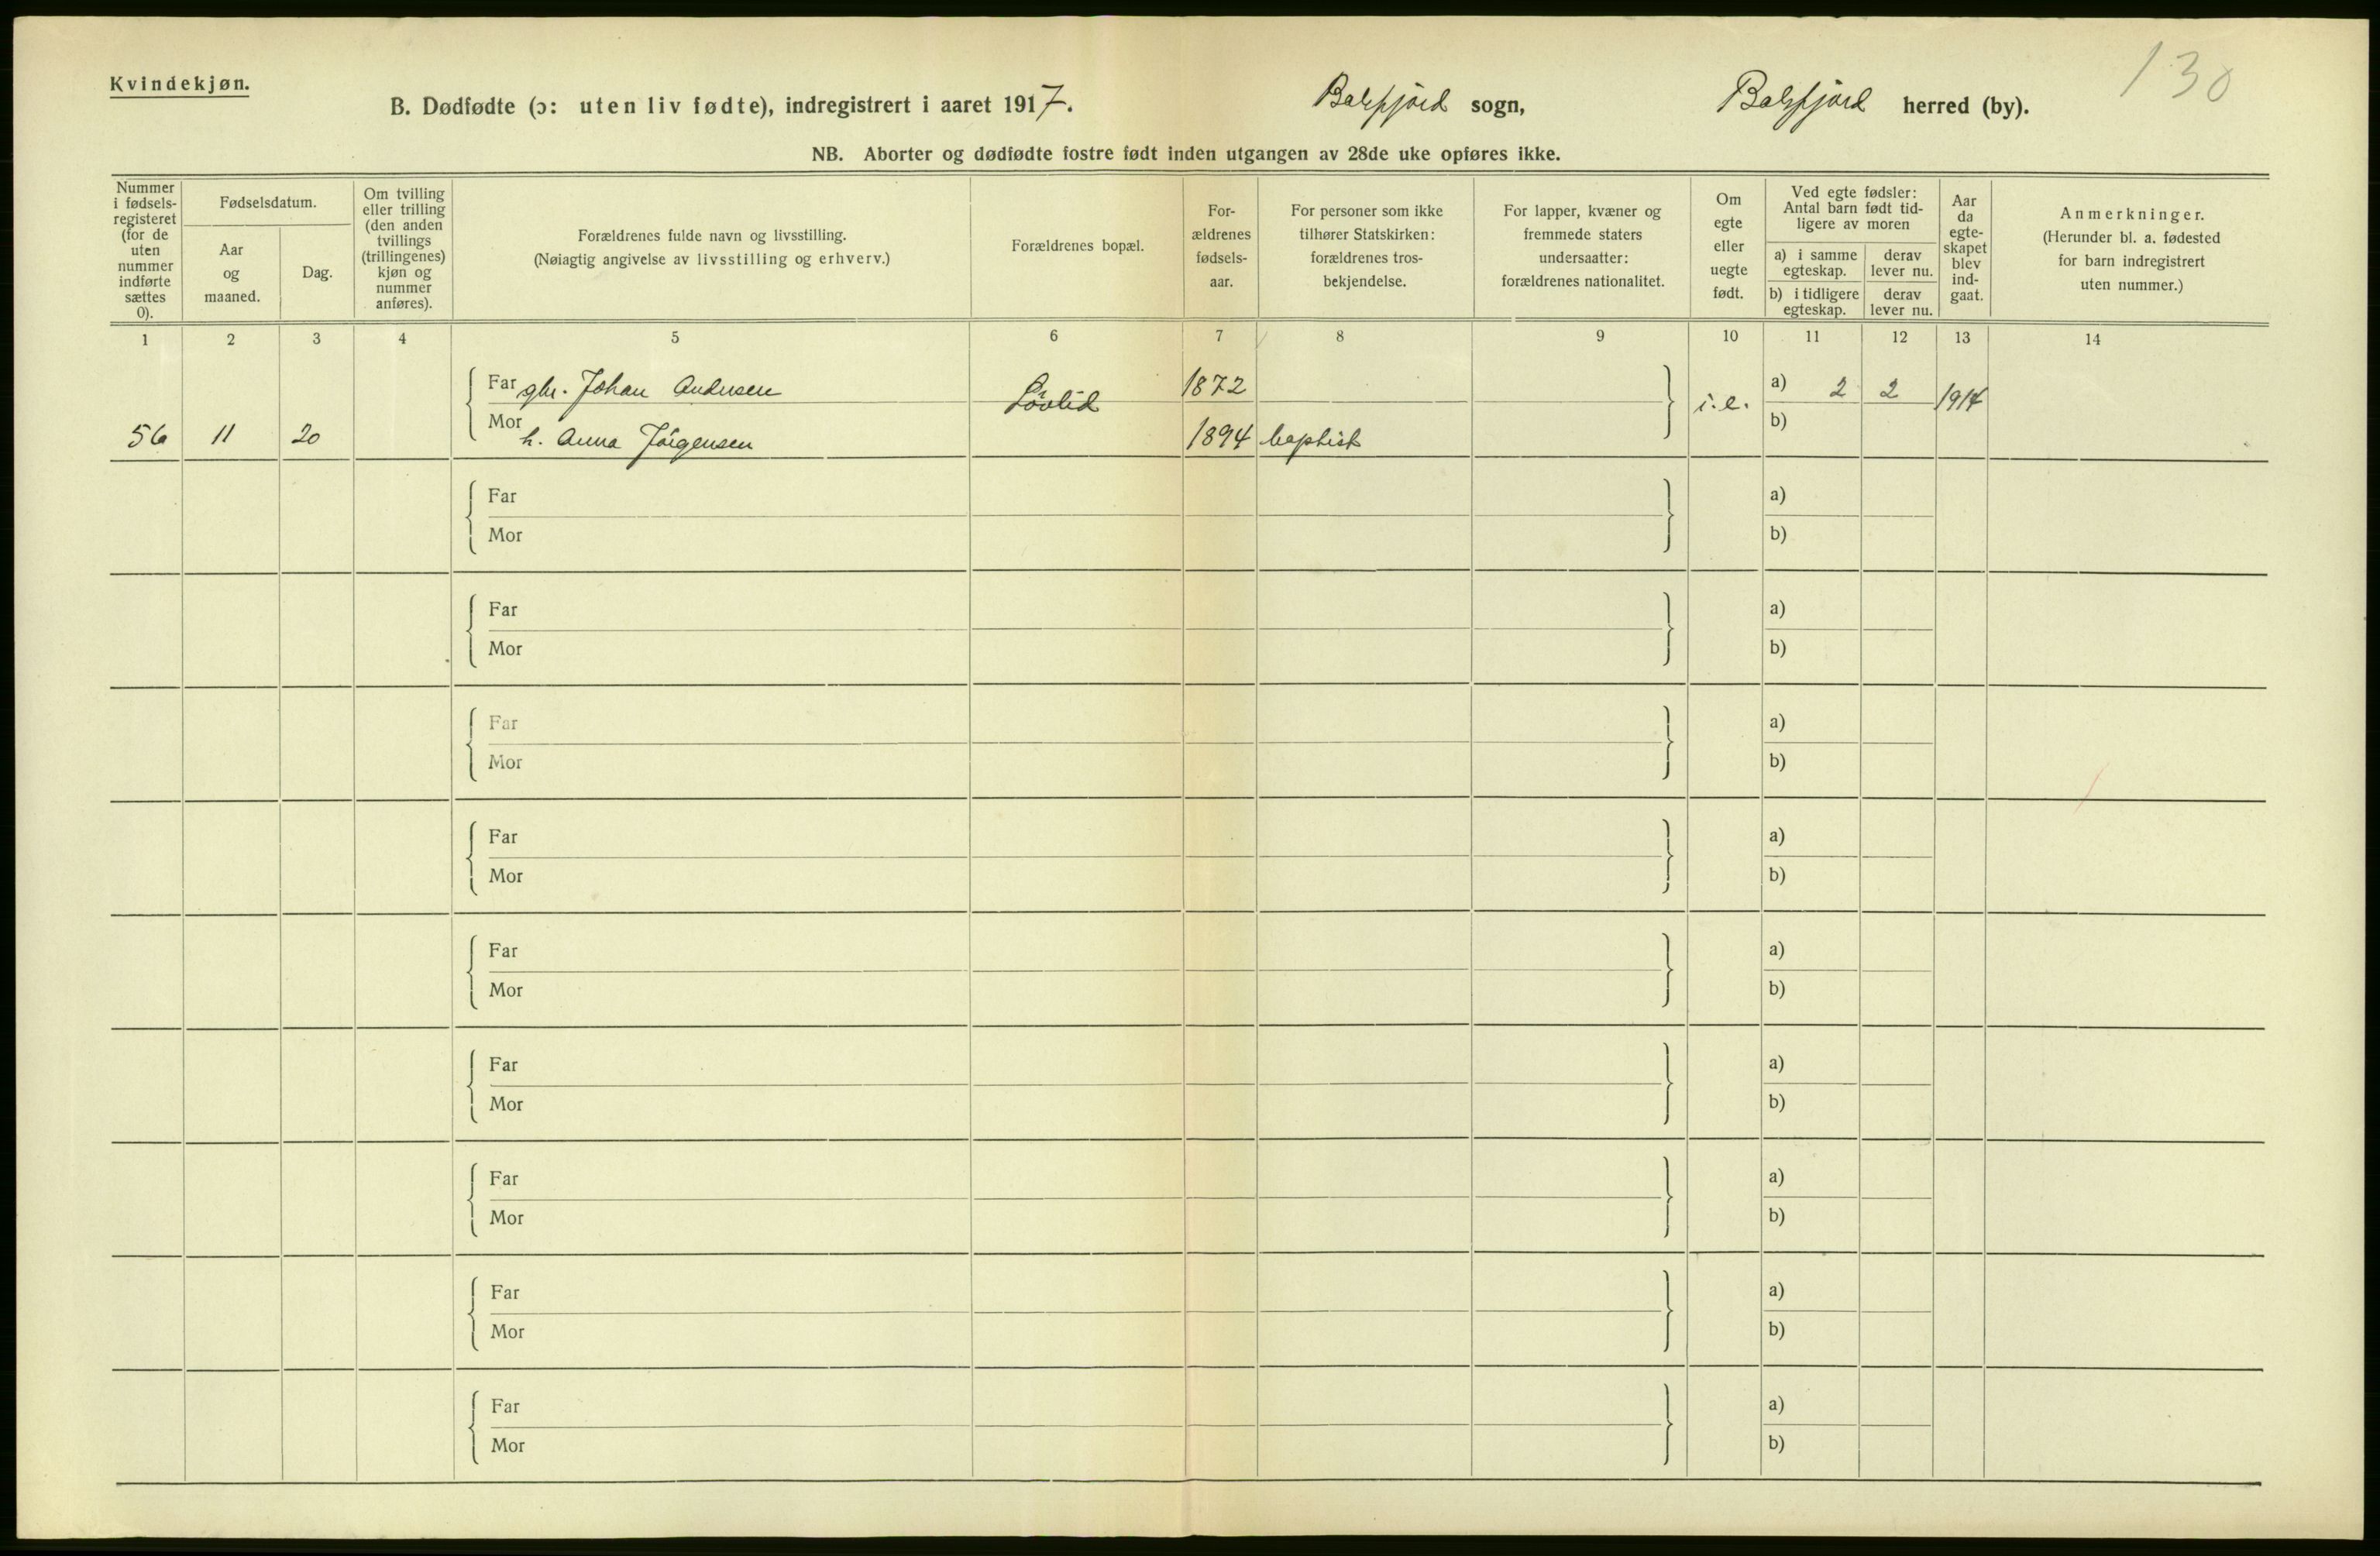 130
Kvindekjøn.
B. Dødfødte (ɔ: uten liv fødte), indregistrert i aaret 1917. Balsfjord sogn, Balsfjord herred (by).
NB. Aborter og dødfødte fostre født inden utgangen av 28de uke opføres ikke.
Nummer
i fødsels-
registeret
(for de
uten
nummer
indførte
sættes
0).
Fødselsdatum.
Aar
og
maaned.
Dag.
Om tvilling
eller trilling
(den anden
tvillings
(trillingenes)
kjøn og
nummer
anføres).
Forældrenes fulde navn og livsstilling.
(Nøiagtig angivelse av livsstilling og erhverv.)
Forældrenes bopæl.
For-
ældrenes
fødsels-
aar.
For personer som ikke
tilhører Statskirken:
forældrenes tros-
bekjendelse.
For lapper, kvæner og
fremmede staters
undersaatter:
forældrenes nationalitet.
Om
egte
eller
uegte
født.
Ved egte fødsler:
Antal barn født tid-
ligere av moren
a) i samme
egteskap.
derav
lever nu.
b) i tidligere
egteskap.
derav
lever nu.
Aar
da
egte-
skapet
blev
ind-
gaat.
Anmerkninger.
(Herunder bl. a. fødested
for barn indregistrert
uten nummer.)
1 2 3 4 5 6 7 8 9 10 11 12 13 14
Far gbr. Johan Andersen Løvlid 1872 i.e. a) 2 2 1914
56 11 20 Mor h. Anna Jörgensen 1894 baptist b)
Far a)
Mor b)
Far a)
Mor b)
Far a)
Mor b)
Far a)
Mor b)
Far a)
Mor b)
Far a)
Mor b)
Far a)
Mor b)
Far a)
Mor b)
Far a)
Mor b)